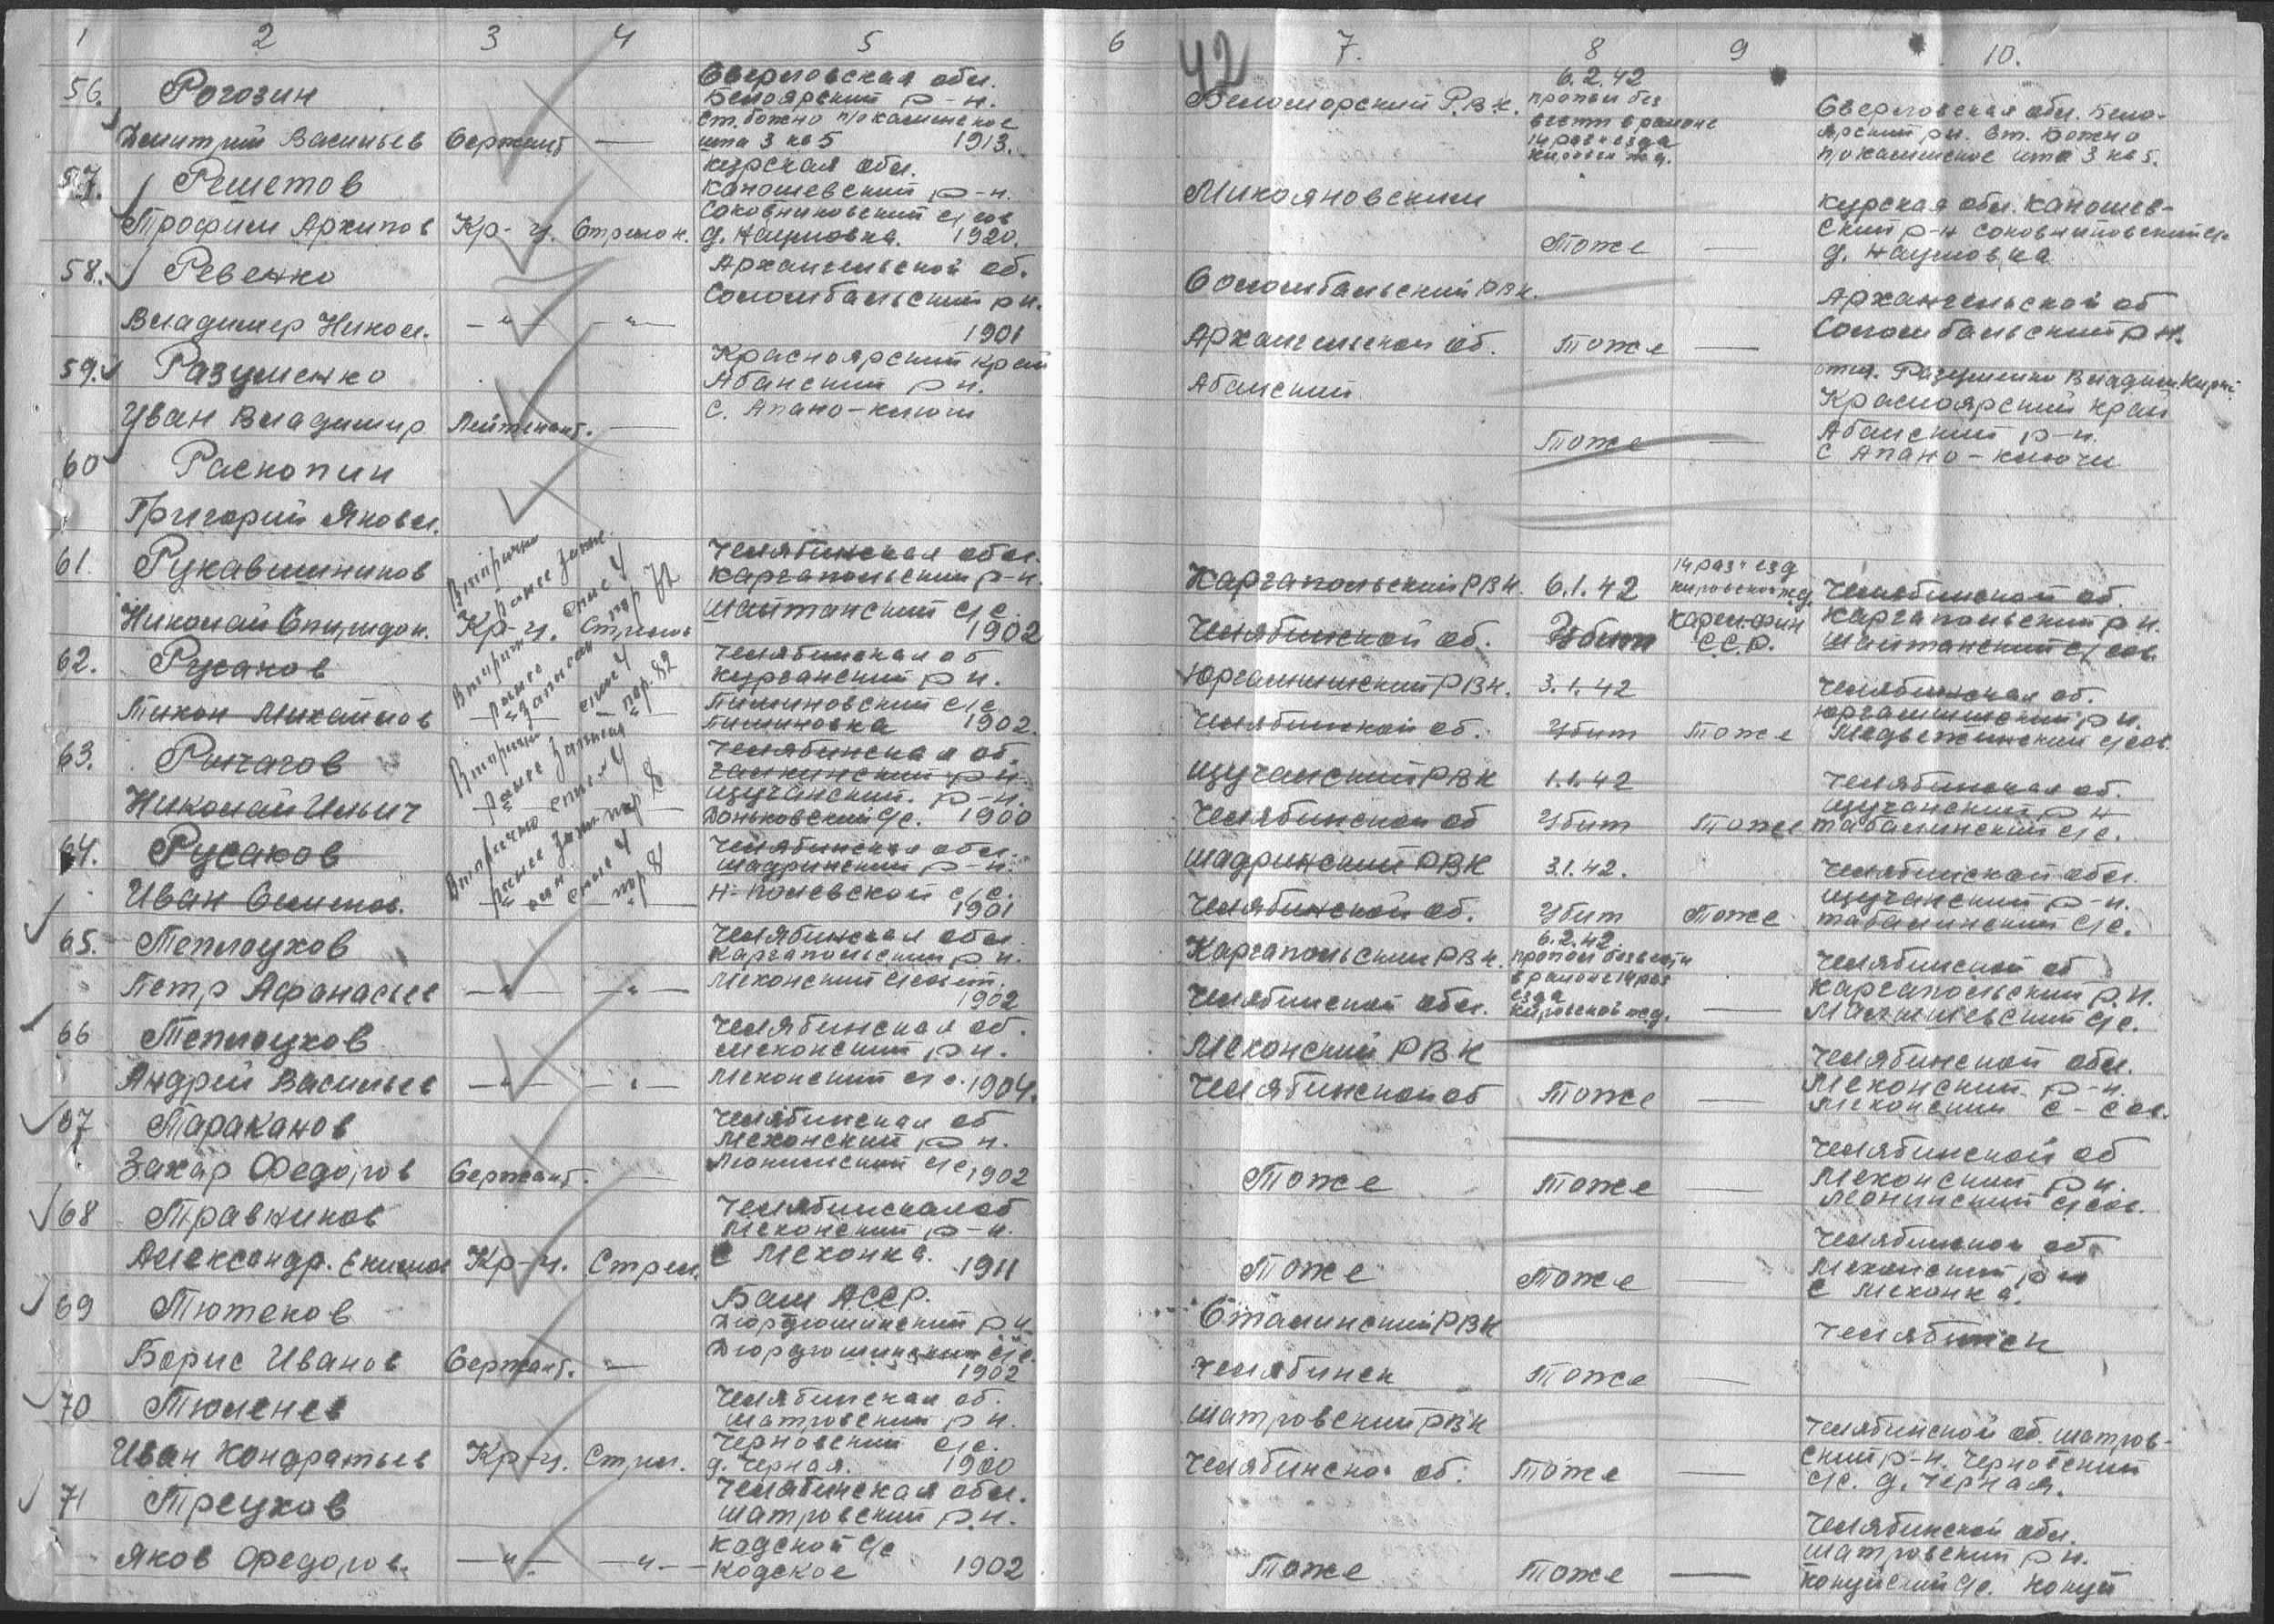 1 2 3 4 5 6 42 7. 8 9 10.
56. Рогозин
Дмитрий Васильев Сержант —
Свердловская обл.
Белоярский р-н.
ст. Бажно п/о каменское
шта 3 кв 5 1913.
Беломорский Р.В.К.
6.2.42
пропал без
вести в районе
14 раз"езда
Киров. ж.д.
Свердловская обл. Бело-
ярский р.н. ст. Бажно
п/о каменское шта 3 кв 5.
57. Решетов
Трофим Архипов Кр-ц. Стрелок.
Курская обл.
Каношевский р-н.
Соковниковский с/сов
д. Наумовка. 1920.
Микояновским
Тоже —
Курская обл. Каношев-
ский р-н Соковниковский с/с
д. Наумовка
58. Ревенко
Владимир Никол. —"— —"—
Архангельской об.
Соломбальский р.н.
1901
Соломбальский РВК.
Архангельской об. Тоже —
Архангельской об
Соломбальский р.н.
59. Разуменко
Иван Владимир Лейтенант. —
Красноярский край
Абанский р.н.
с. Апано-ключи
Абанский
Тоже —
отец. Разуменко Владим.
Красноярский край
Абанский р-н.
с Апано-ключи
60 Раскопин
Григорий Яковл.
61. Рукавишников
Николай Спиридон. Кр-ц. Стрелок
Вторично
ранее запис.
спис 4
пор 72
Челябинская обл.
Каргапольский р-н.
Шайтанский с/с.
1902
Каргапольский РВК. 6.1.42
Челябинской об. Убит
14 раз"езд
кировской ж.д.
Карел-фин
С.С.Р.
Челябинской об.
Каргапольский р.н.
Шайтанский с/сов
62. Русанов
Тихон Михайлов —"— —"—
Вторично
ранее
записан
спис 4
пор. 82
Челябинская об
Курганский р.н.
Пишиновский с/с
Пишиновка 1902.
Юргамышский РВК. 3.1.42
Челябинской об. Убит Тоже
Челябинская об.
Юргамышский р.н.
Медвежинский с/сов.
63. Рычагов
Николай Ильич —"— —
Вторично
ранее записан
спис 4
пор 8
Челябинская об.
Галкинский р-н.
Щучанский. р-н.
Доньковский с/с. 1900
Щучанский РВК 1.1.42
Челябинской об Убит Тоже
Челябинская об.
Щучанский р н
Табалинский с/с.
64. Русаков
Иван Осипов. —"— —"—
Вторично
ранее запи
сан спис 4
пор 81
Челябинская обл.
Шадринский р-н.
Н-Полевской с/с.
1901
Шадринский РВК 3.1.42.
Челябинской об. Убит Тоже
Челябинской обл.
Щучанский р-н.
Табалинский с/с.
65. Теплоухов
Петр Афанасьев —"— —"—
Челябинская обл.
Каргапольский р н.
Мехонский с/совет.
1902
Каргапольский РВК.
Челябинской обл.
6.2.42.
пропал без вести
в районе 14 раз
езда
Кировской ж.д. —
Челябинской об
Каргапольский р.н.
с/с.
66 Теплоухов
Андрей Васильев —"— —"—
Челябинская об.
Мехонский р н.
Мехонский с/с. 1904.
Мехонский РВК
Челябинской об Тоже —
Челябинской обл.
Мехонский р-н.
Мехонский с-сов.
67 Тараканов
Захар Федоров Сержант. —
Челябинская об
Мехонский р н.
с/с 1902
Тоже Тоже —
Челябинской об
Мехонский р н.
с/сов.
68 Травников
Александр. Екимов Кр-ц. Стрел.
Челябинская об
Мехонский р-н.
С Мехонка. 1911
Тоже Тоже —
Челябинской об.
Мехонский р н
С Мехонка.
69 Тютеков
Борис Иванов Сержант. —
Баш АССР.
Дюртюлинский р н
Дюртюлинский с/с.
1902
Сталинский РВК
Челябинск Тоже —
Челябинск
70 Тюленев
Иван Кондратьев Кр-ц. Стрел.
Челябинская об.
Шатровский р н.
Черновский с/с.
д. Черная. 1900
Шатровский РВК
Челябинской об. Тоже —
Челябинской об. Шатров-
ский р-н. Черновский
с/с. д. Черная.
71 Треухов
Яков Федоров. —"— —"—
Челябинская обл.
Шатровский р.н.
Кодской с/с
Кодское 1902
Тоже Тоже —
Челябинской обл.
Шатровский р н.
с/с.